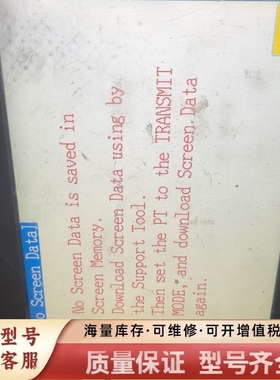 o Screen Data]
No Screen Data is saved in
Screen Memory.
Download Screen Data using by
the Support Tool.
Then set the PT to the TRANSMIT
MODE, and download Screen Data
again.
型号
客服
海量库存·可维修·可开增值税
质量保证 型号齐